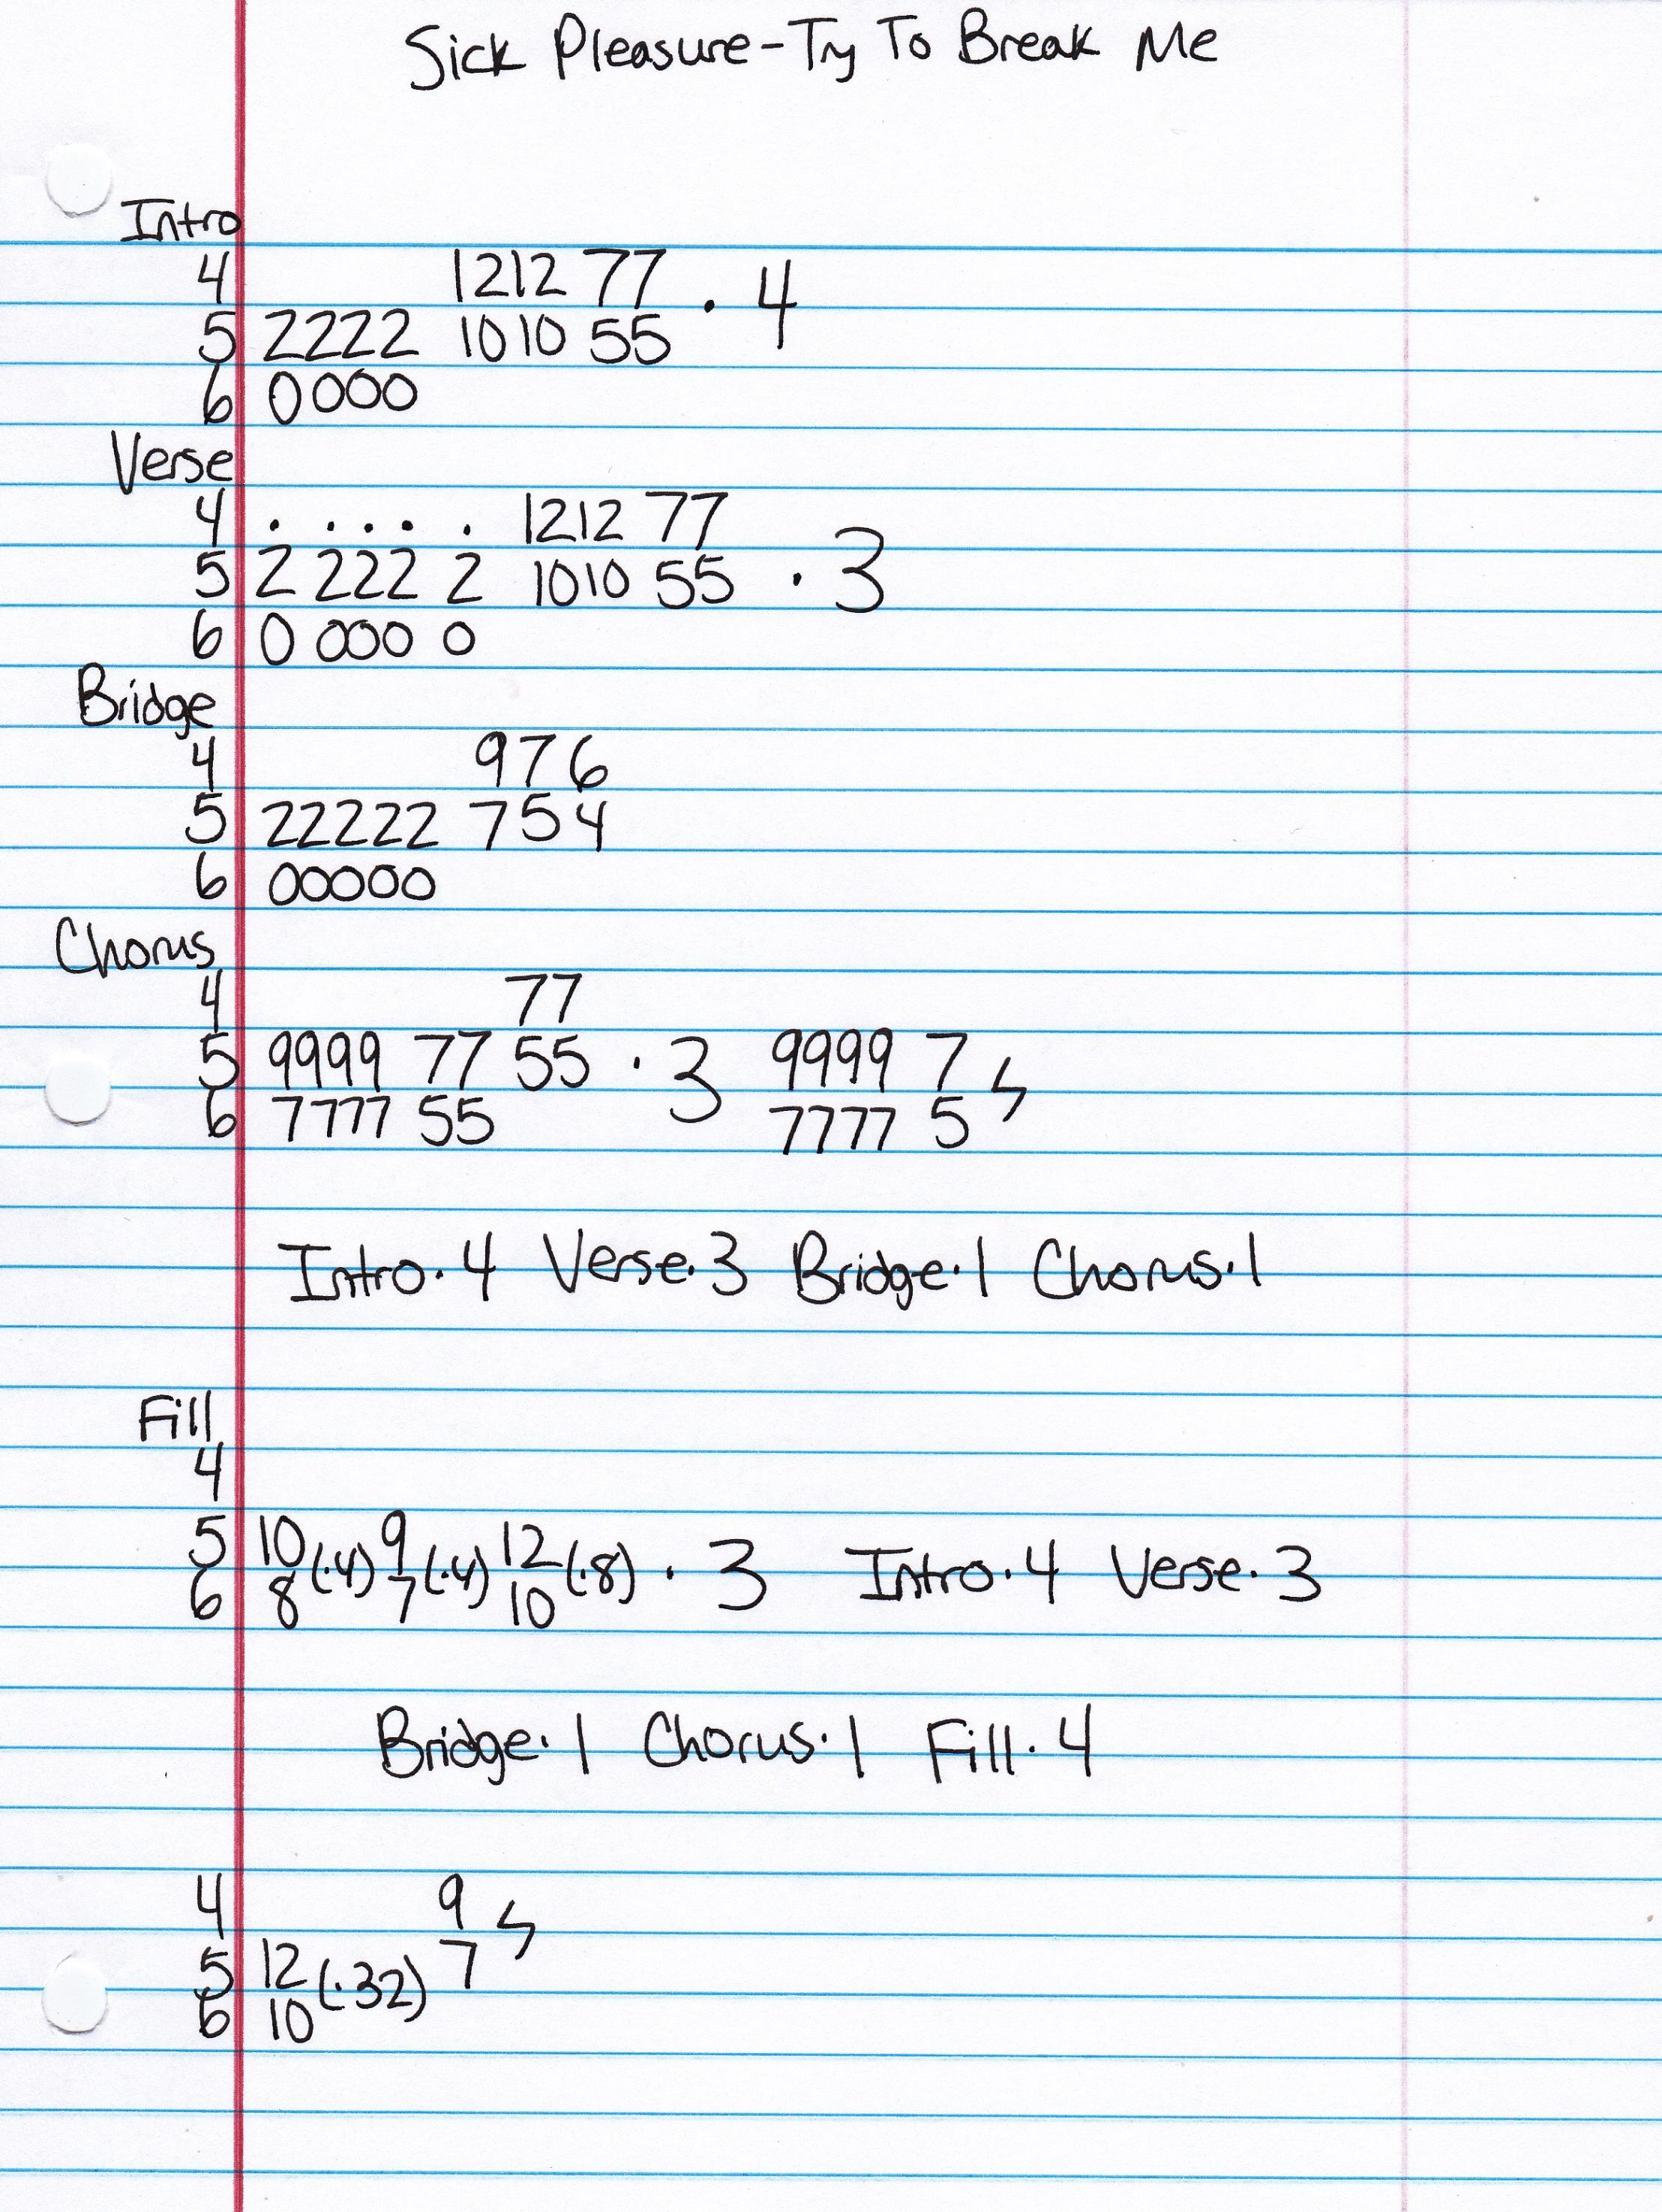 Sick Pleasure-Try To Break Me
Intro
4 1212 77 · 4
5 2222 1010 55
6 0000
Verse
4 · · · · · 1212 77
5 2 222 2 1010 55 · 3
6 0 000 0
Bridge
4 976
5 22222 754
6 00000
Chorus
4 77
5 9999 77 55 · 3 9999 7
6 7777 55 7777 5
Intro·4 Verse·3 Bridge·1 Chorus·1
Fill
4
5 10 (·4) 9 (·4) 12 (·8) · 3 Intro·4 Verse·3
6 8 7 10
Bridge·1 Chorus·1 Fill·4
4 9
5 12 (·32) 7
6 10